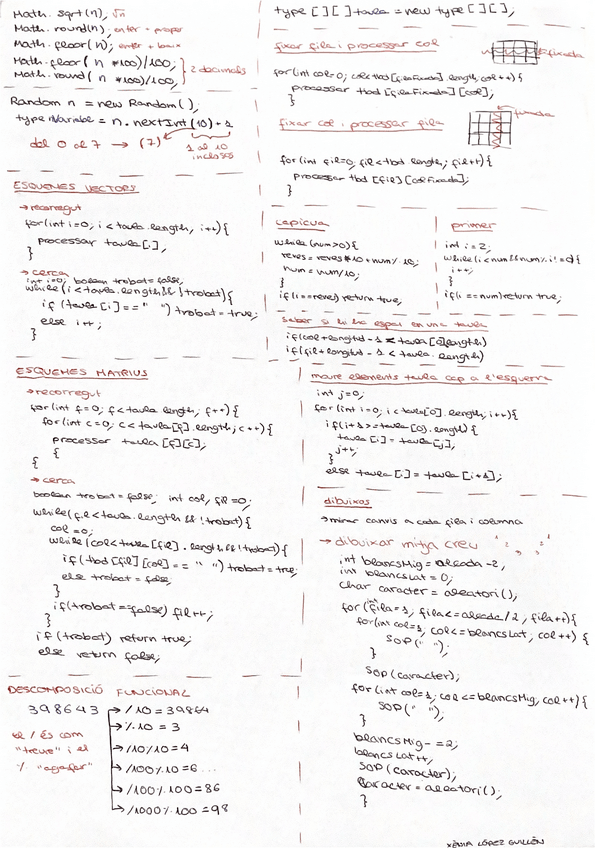 Math. sqrt(n), √n
Math. round(n), enter + proper
Math. floor(n); enter + baix
Math. floor( n *100)/100;
Math. round( n *100)/100; } 2 decimals
Random n = new Random();
type nVariable = n. nextInt(10) + 1
del 0 al 7 → (7)
1 al 10
inclosos
ESQUEMES VECTORS
→ recorregut
for(int i=0; i < taula.length; i++){
processar taula[i];
}
→ cerca
int i=0; boolean trobat=false;
while(i < taula.length && !trobat){
if (taula[i] == " ") trobat = true;
else i++;
}
ESQUEMES MATRIUS
→ recorregut
for(int f=0; f < taula.length; f++){
for(int c=0; c < taula[f].length; c++){
processar taula[f][c];
{
{
→ cerca
boolean trobat = false; int col, fil = 0;
while(fil < taula.length && !trobat){
col = 0;
while(col < taula[fil].length && !trobat){
if(tbd[fil][col] == " ") trobat = true;
else trobat = false;
}
if(trobat == false) fil++;
}
if (trobat) return true;
else return false;
DESCOMPOSICIÓ FUNCIONAL
398643
→ /10 = 39864
→ %.10 = 3
→ /10%10 = 4
→ /100%10 = 6 ...
→ /100%100 = 86
→ /1000%100 = 98
el / és com
"treure" i el
% "agafar"
type [ ][ ] taula = new type [ ][ ];
fixar fila i processar col
fixada
for(int col=0; col<tbd[filaFixada].length; col++){
processar tbd[filaFixada][col];
}
fixar col i processar fila
fixada
for(int fil=0; fil<tbd.length; fil++){
processar tbd[fil][colFixada];
}
capicua
while(num>0){
reves = reves*10 + num%10;
num = num/10;
}
if(i==reves) return true;
primer
int i = 2;
while(i<num && num%i != 0){
i++;
}
if(i == num) return true;
saber si hi ha espai en una taula
if(col+longitud - 1 < taula[0].length)
if(fil+longitud - 1 < taula.length)
moure elements taula cap a l'esquerra
int j=0;
for(int i=0; i<taula[0].length; i++){
if(i+1 >= taula[0].length){
taula[i] = taula[j];
j++;
}
else taula[i] = taula[i+1];
dibuixos
→ mirar canvis a cada fila i columna
→ dibuixar mitja creu
int blancsMig = alçada - 2;
int blancsLat = 0;
char caracter = aleatori();
for(int fila=1; fila<=alçada/2; fila++){
for(int col=1; col<=blancsLat; col++){
SOP(" ");
}
SOP(caracter);
for(int col=1; col<=blancsMig; col++){
SOP(" ");
}
blancsMig -= 2;
blancsLat++;
SOP(caracter);
caracter = aleatori();
}
XÈNIA LÓPEZ GUILLÉN